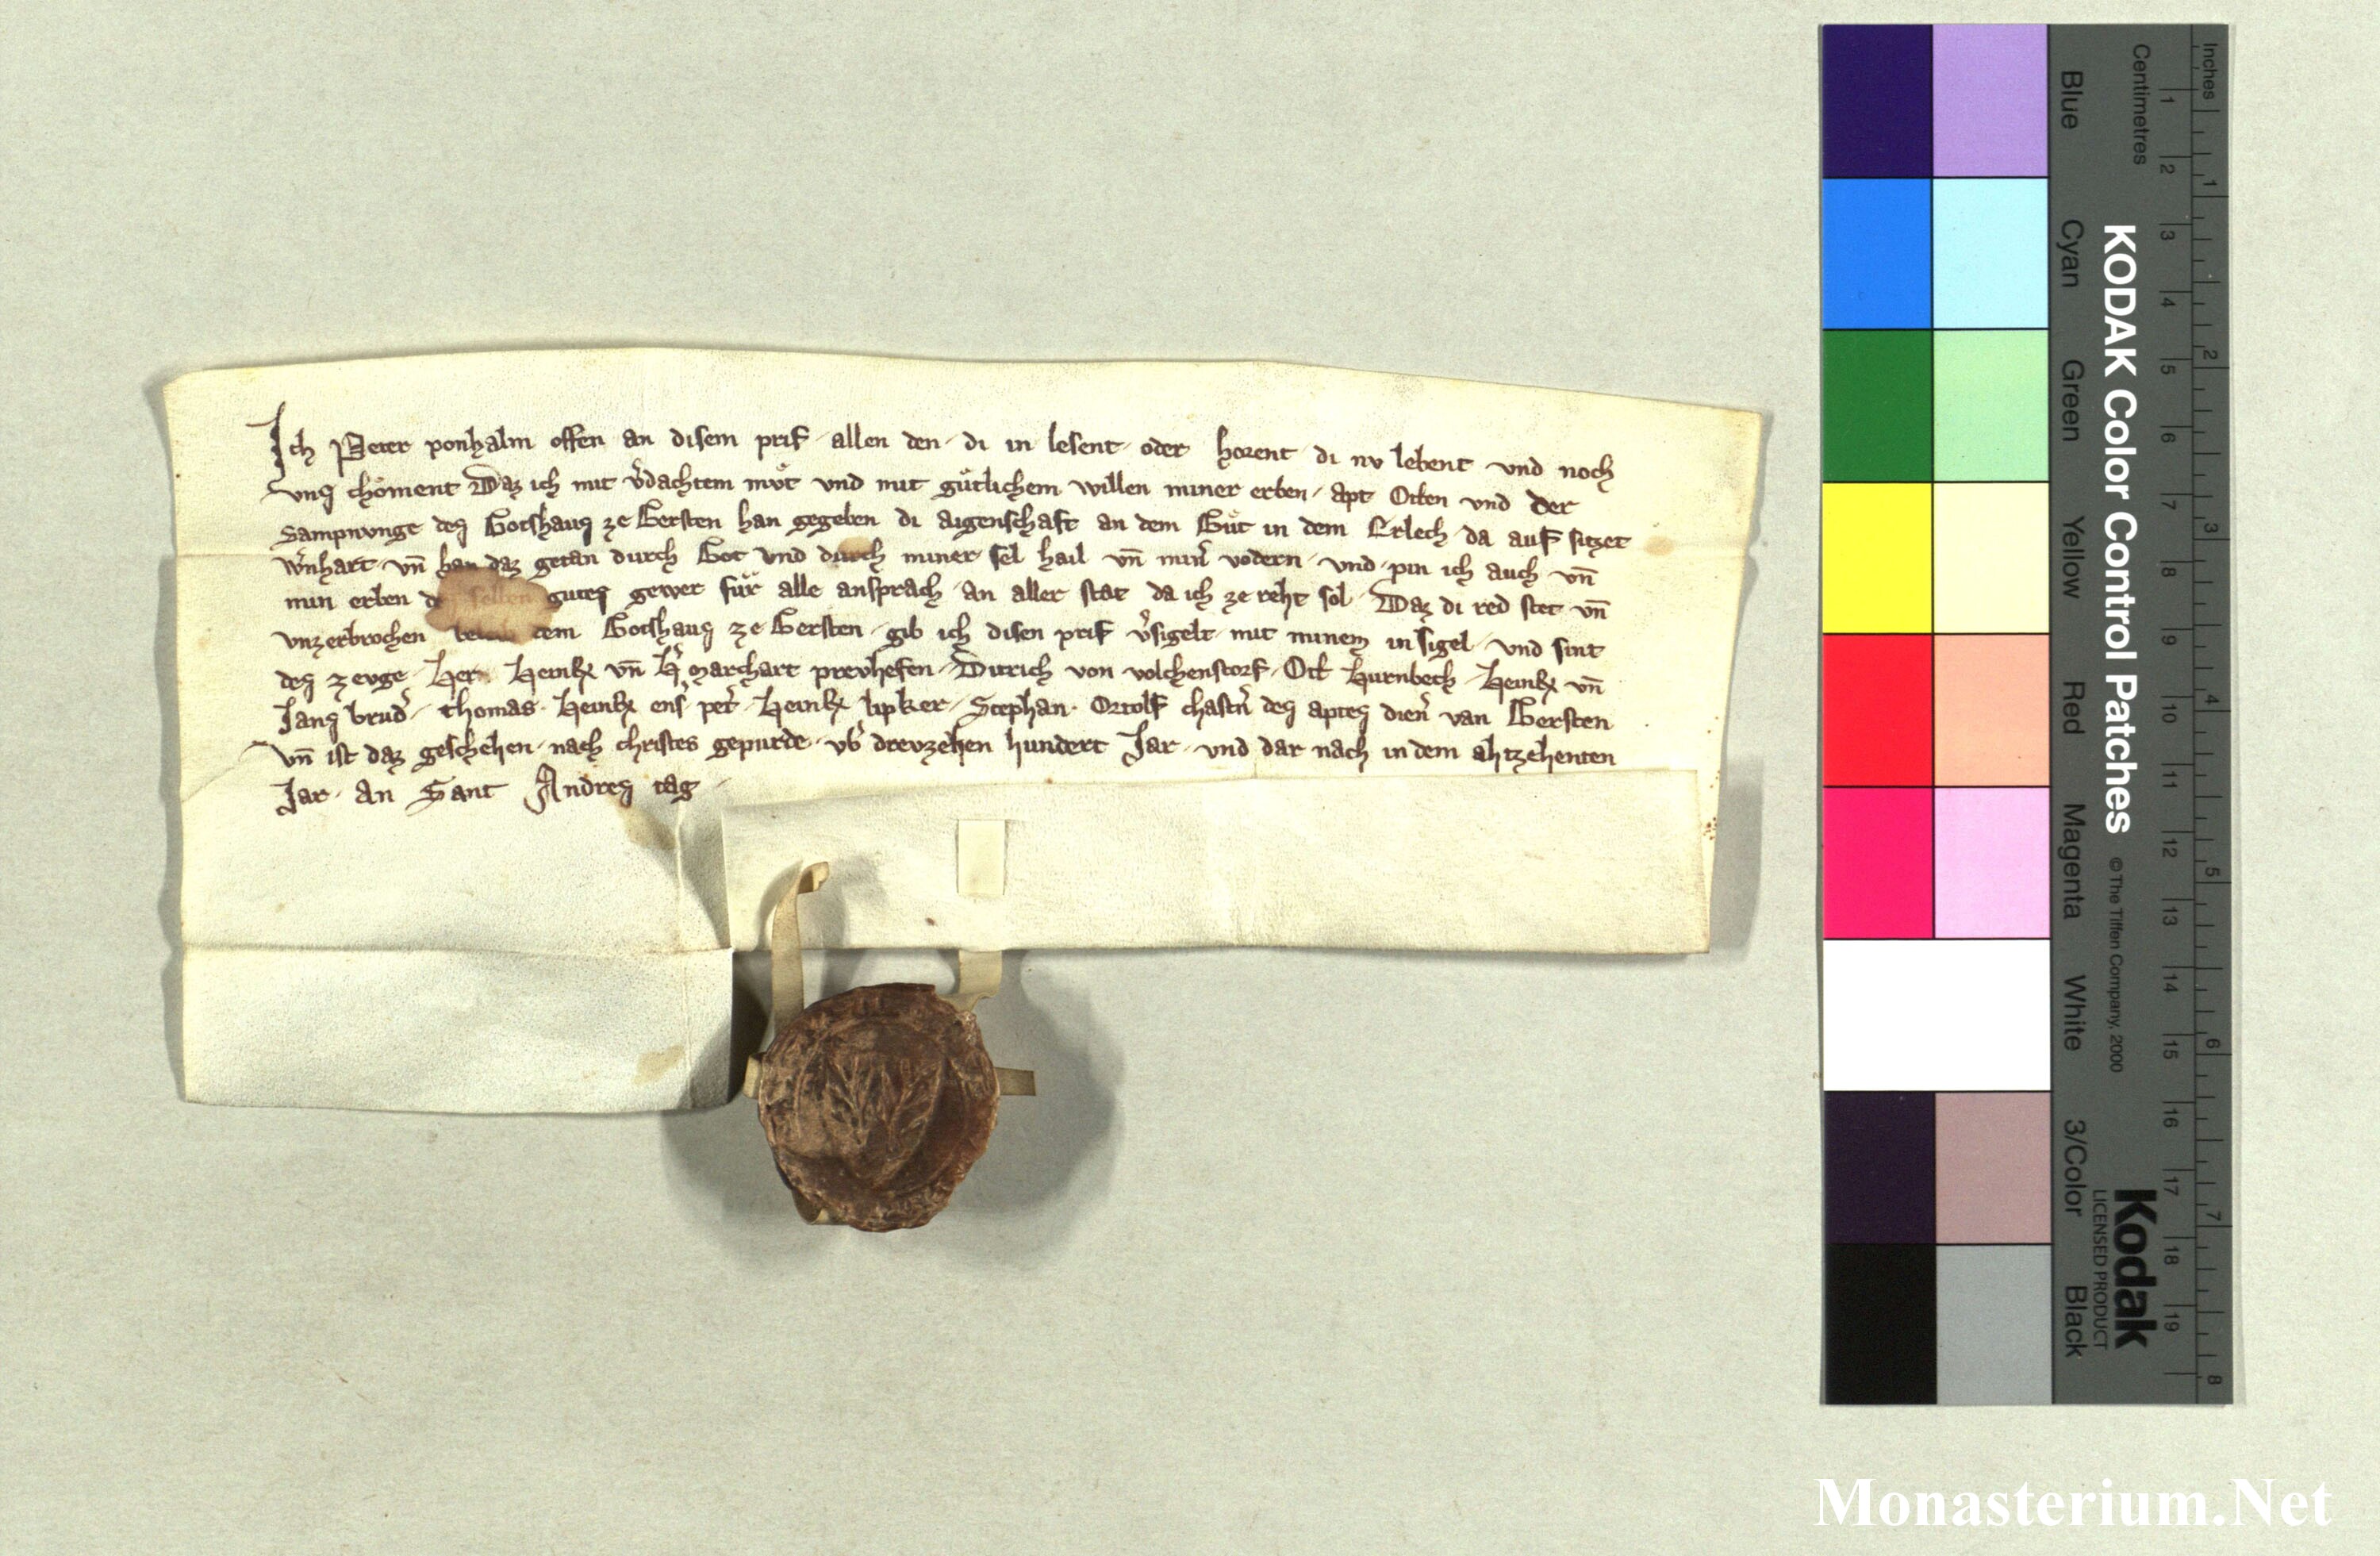 Ich Peter ponhalm offen an disem prif allen den di in lesent oder horent di nv lebent vnd noch
vns choͤment Daz ich mit v̓dachtem mvͦt vnd mit guͤtlichem willen miner erben apt Otten vnd der
Sampnvnge des Gotshaus ze Gersten han gegeben di aigenschaft an dem Guͦt in dem Erlech da auf sitzet
w̓nhart vn̄ han daz getan durch Got vnd durch miner sel hail vn̄ min̓ vodern vnd pin ich auch vn̄
min erben des selben gutes gewer fuͤr alle ansprach an aller stat da ich ze reht sol Daz di red stet vn̄
vnzerbrochen beleib dem Gotshaus ze Gersten gib ich disen prif v̓sigelt mit minem insigel vnd sint
des zevge Her Heinr vn̄ H̓ marchart prevhefen Ditrich von volchenstorf Ott hurnbech Heinr vn̄
Jans brud̓ thomas Heinr ens pet̓ Heinr lipker Stephan Ortolf chastn̓ des aptes dien̓ van Gersten
vn̄ ist daz geschehen nach christes gepurde vb̓ drevzehen hundert Jar vnd dar nach in dem ahtzehenten
Jar An Sant Andres tag
Inches
Centimetres
1 2 3 4 5 6 7 8
1 2 3 4 5 6 7 8 9 10 11 12 13 14 15 16 17 18 19
KODAK Color Control Patches
© The Tiffen Company, 2000
Kodak
LICENSED PRODUCT
Blue
Cyan
Green
Yellow
Red
Magenta
White
3/Color
Black
Monasterium.Net